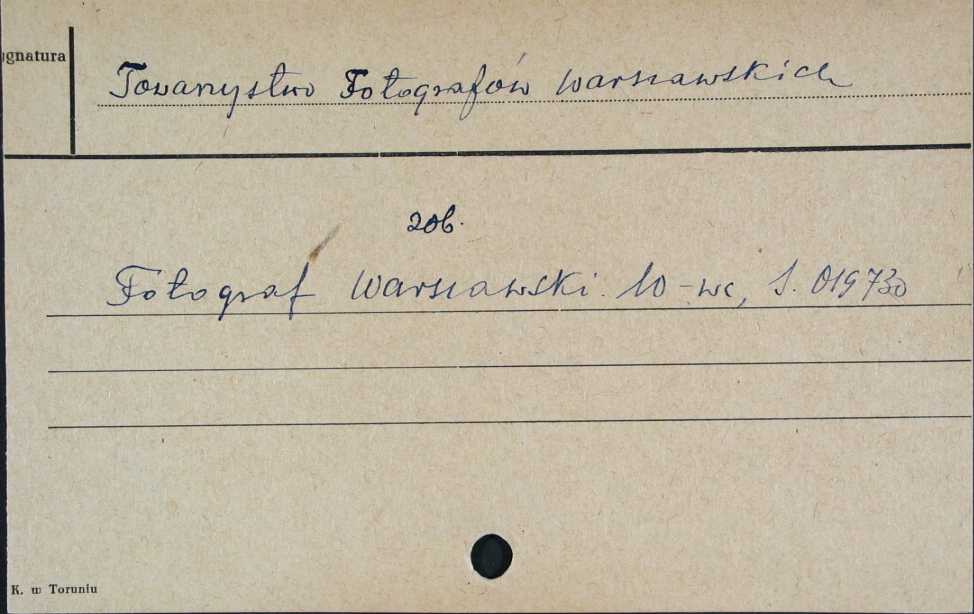 ygnatura
Towarzystwo Fotografów Warszawskich
zob.
Fotograf Warszawski. W-wa, S. 019730
K. w Toruniu